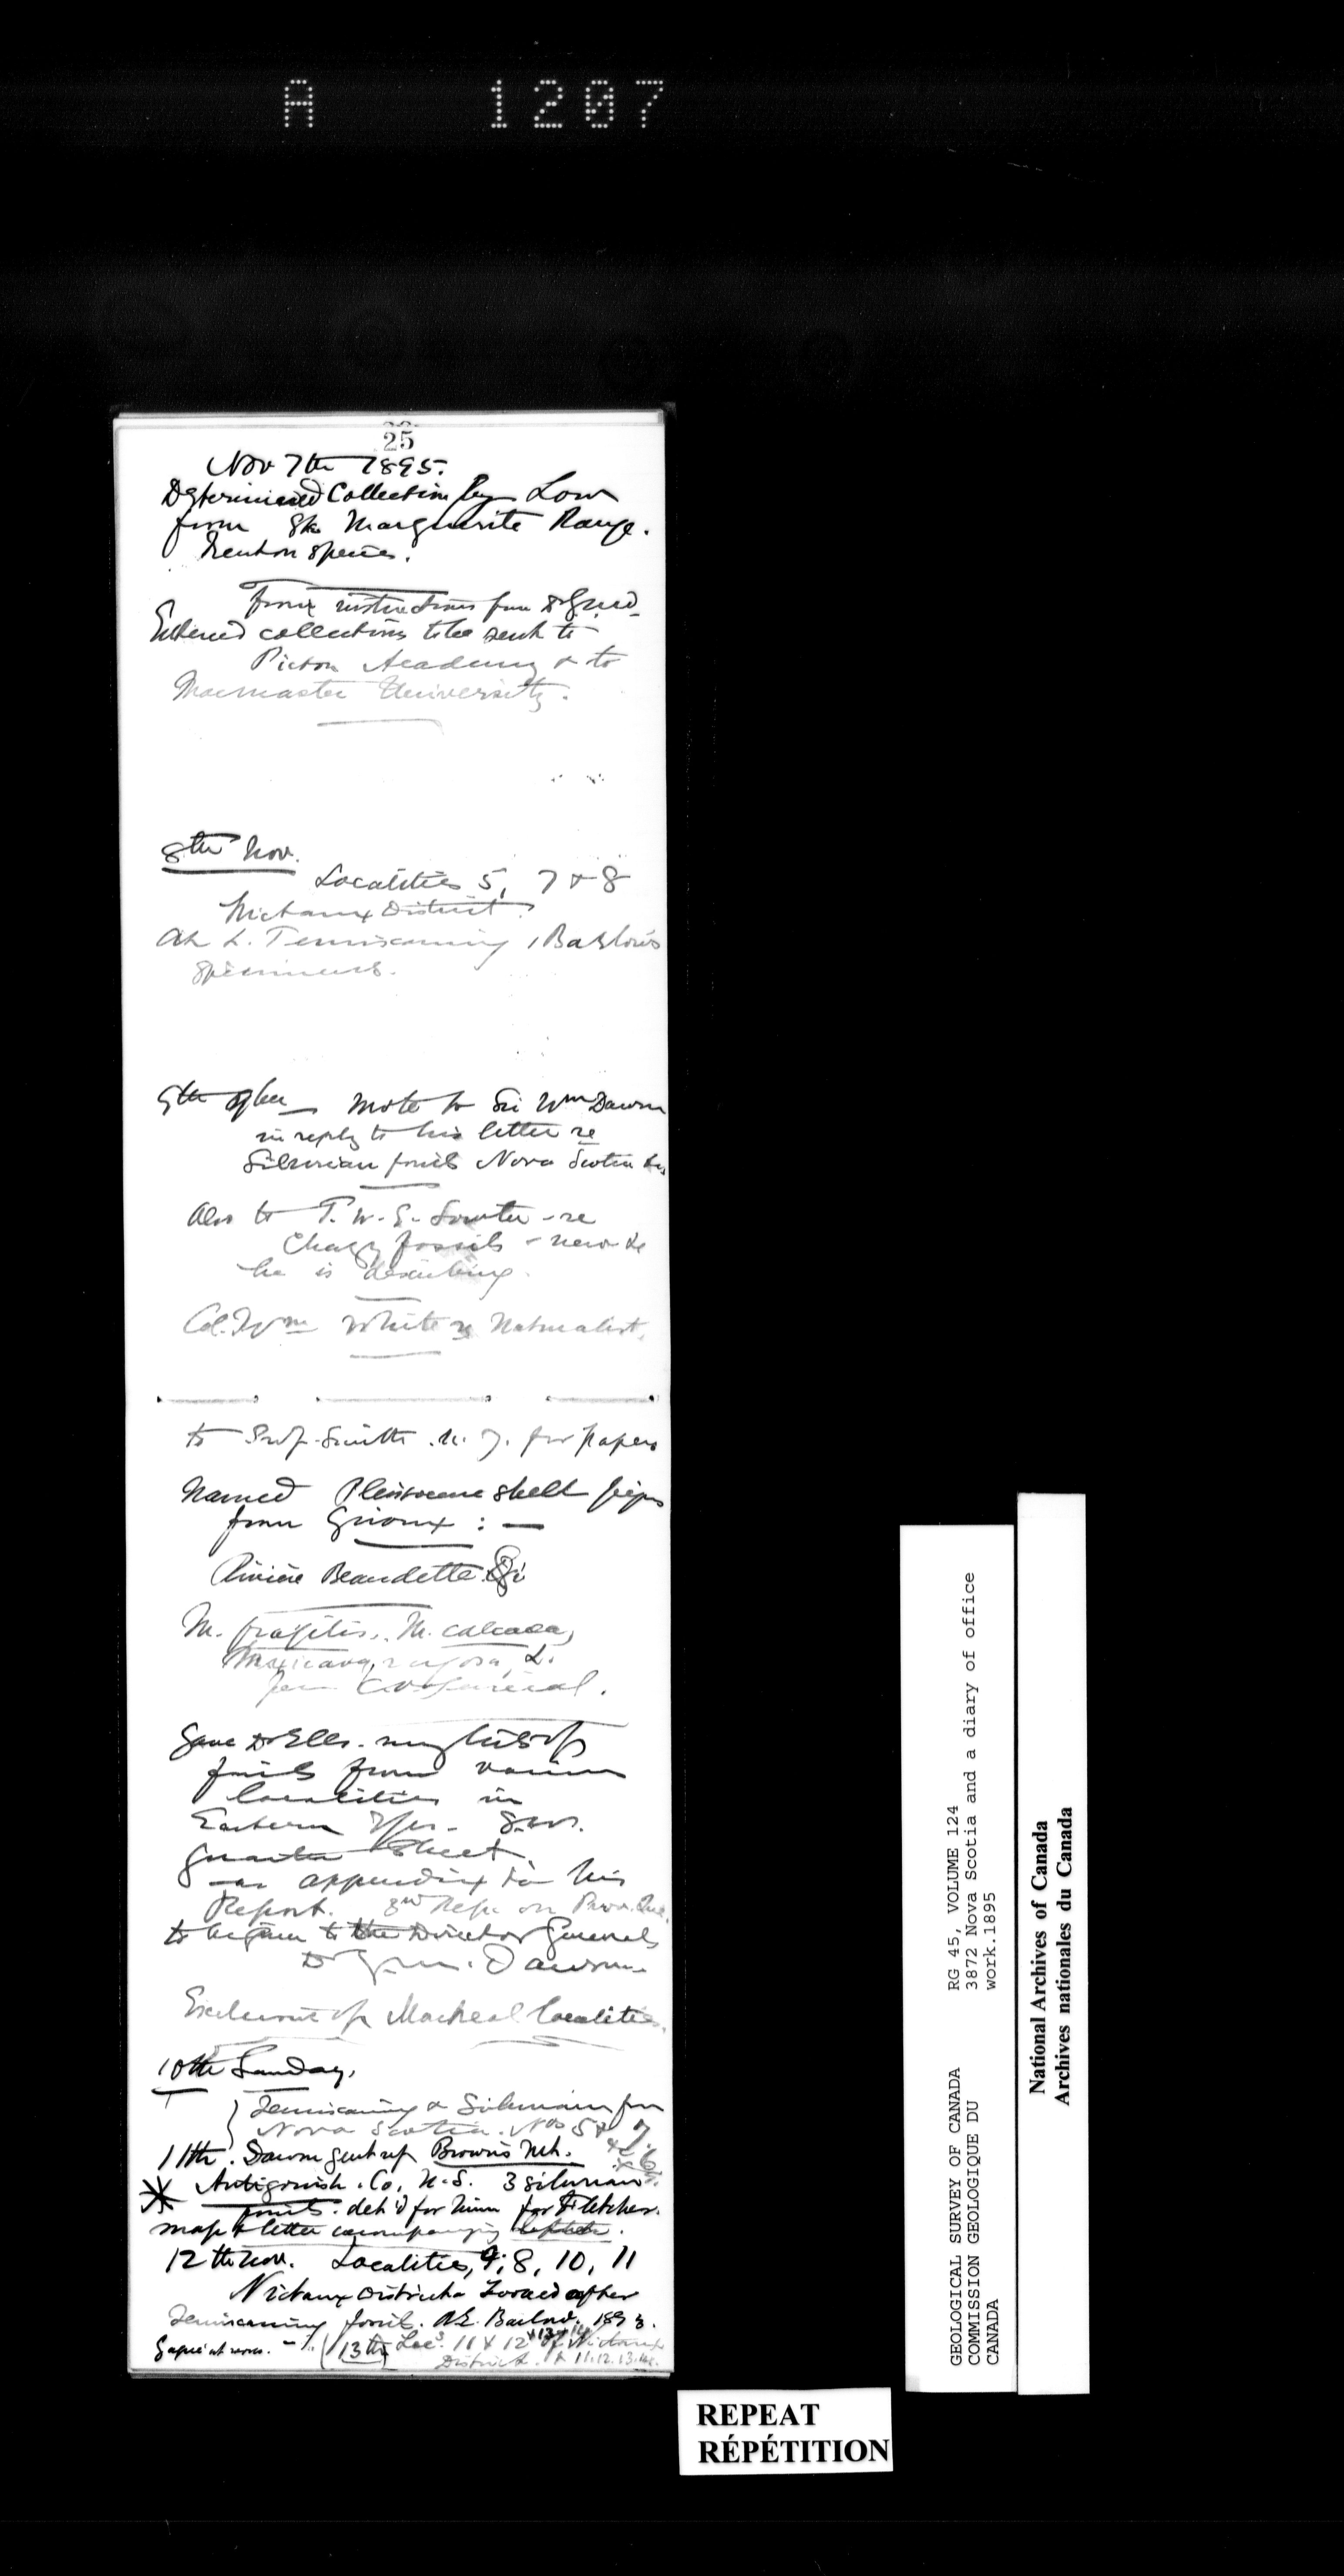 A 1207
25
Nov 7th 1895.
Determined Collection by Low
from Ste Marguerite Range.
Trenton species.
from instructions from
Entered collections to be sent to
Pictou Academy & to
Macmaster University.
8th Nov.
Localities 5, 7 & 8
Nictaux District.
at L. Temiscaming, Barlow's
specimens.
9th — Wrote to Sir Wm Dawson
in reply to his letter re
Silurian fossils Nova Scotia
Also to T. W. E. Sowter - re
Chazy fossils - new
he is describing.
Col. Wm White re Naturalist.
to Prof. Smith for papers
Named Pleistocene shell
from Grioux : —
Rivière Beaudette
M. fragilis, M. calcarea,
Saxicava rugosa, L.
Gave Dr Ells. my lists of
fossils from various
localities in
Eastern S.W.
Quarter Sheet.
as appendix to his
Report. 3rd Rept. on Prov. Que.
to be given to the Director General
Dr G. M. Dawson
of Localities.
10th Sunday.
Temiscaming & Silurian from
Nova Scotia. Nos 5 & 7
& 6
11th. Dawson sent up Brown's Mt.
Antigonish. Co. N.S. 3 Silurian
fossils. det'd for him for Fletcher.
map & letter accompanying
12th Nov. Localities, 9, 8, 10, 11
Nictaux District looked after
Temiscaming fossils. A.E. Barlow. 1893.
13th Locs 11 & 12 & 13 & 14 of Nictaux
District. & 11. 12. 13. 14.
REPEAT
RÉPÉTITION
GEOLOGICAL SURVEY OF CANADA
COMMISSION GEOLOGIQUE DU
CANADA
RG 45, VOLUME 124
3872 Nova Scotia and a diary of office
work.1895
National Archives of Canada
Archives nationales du Canada